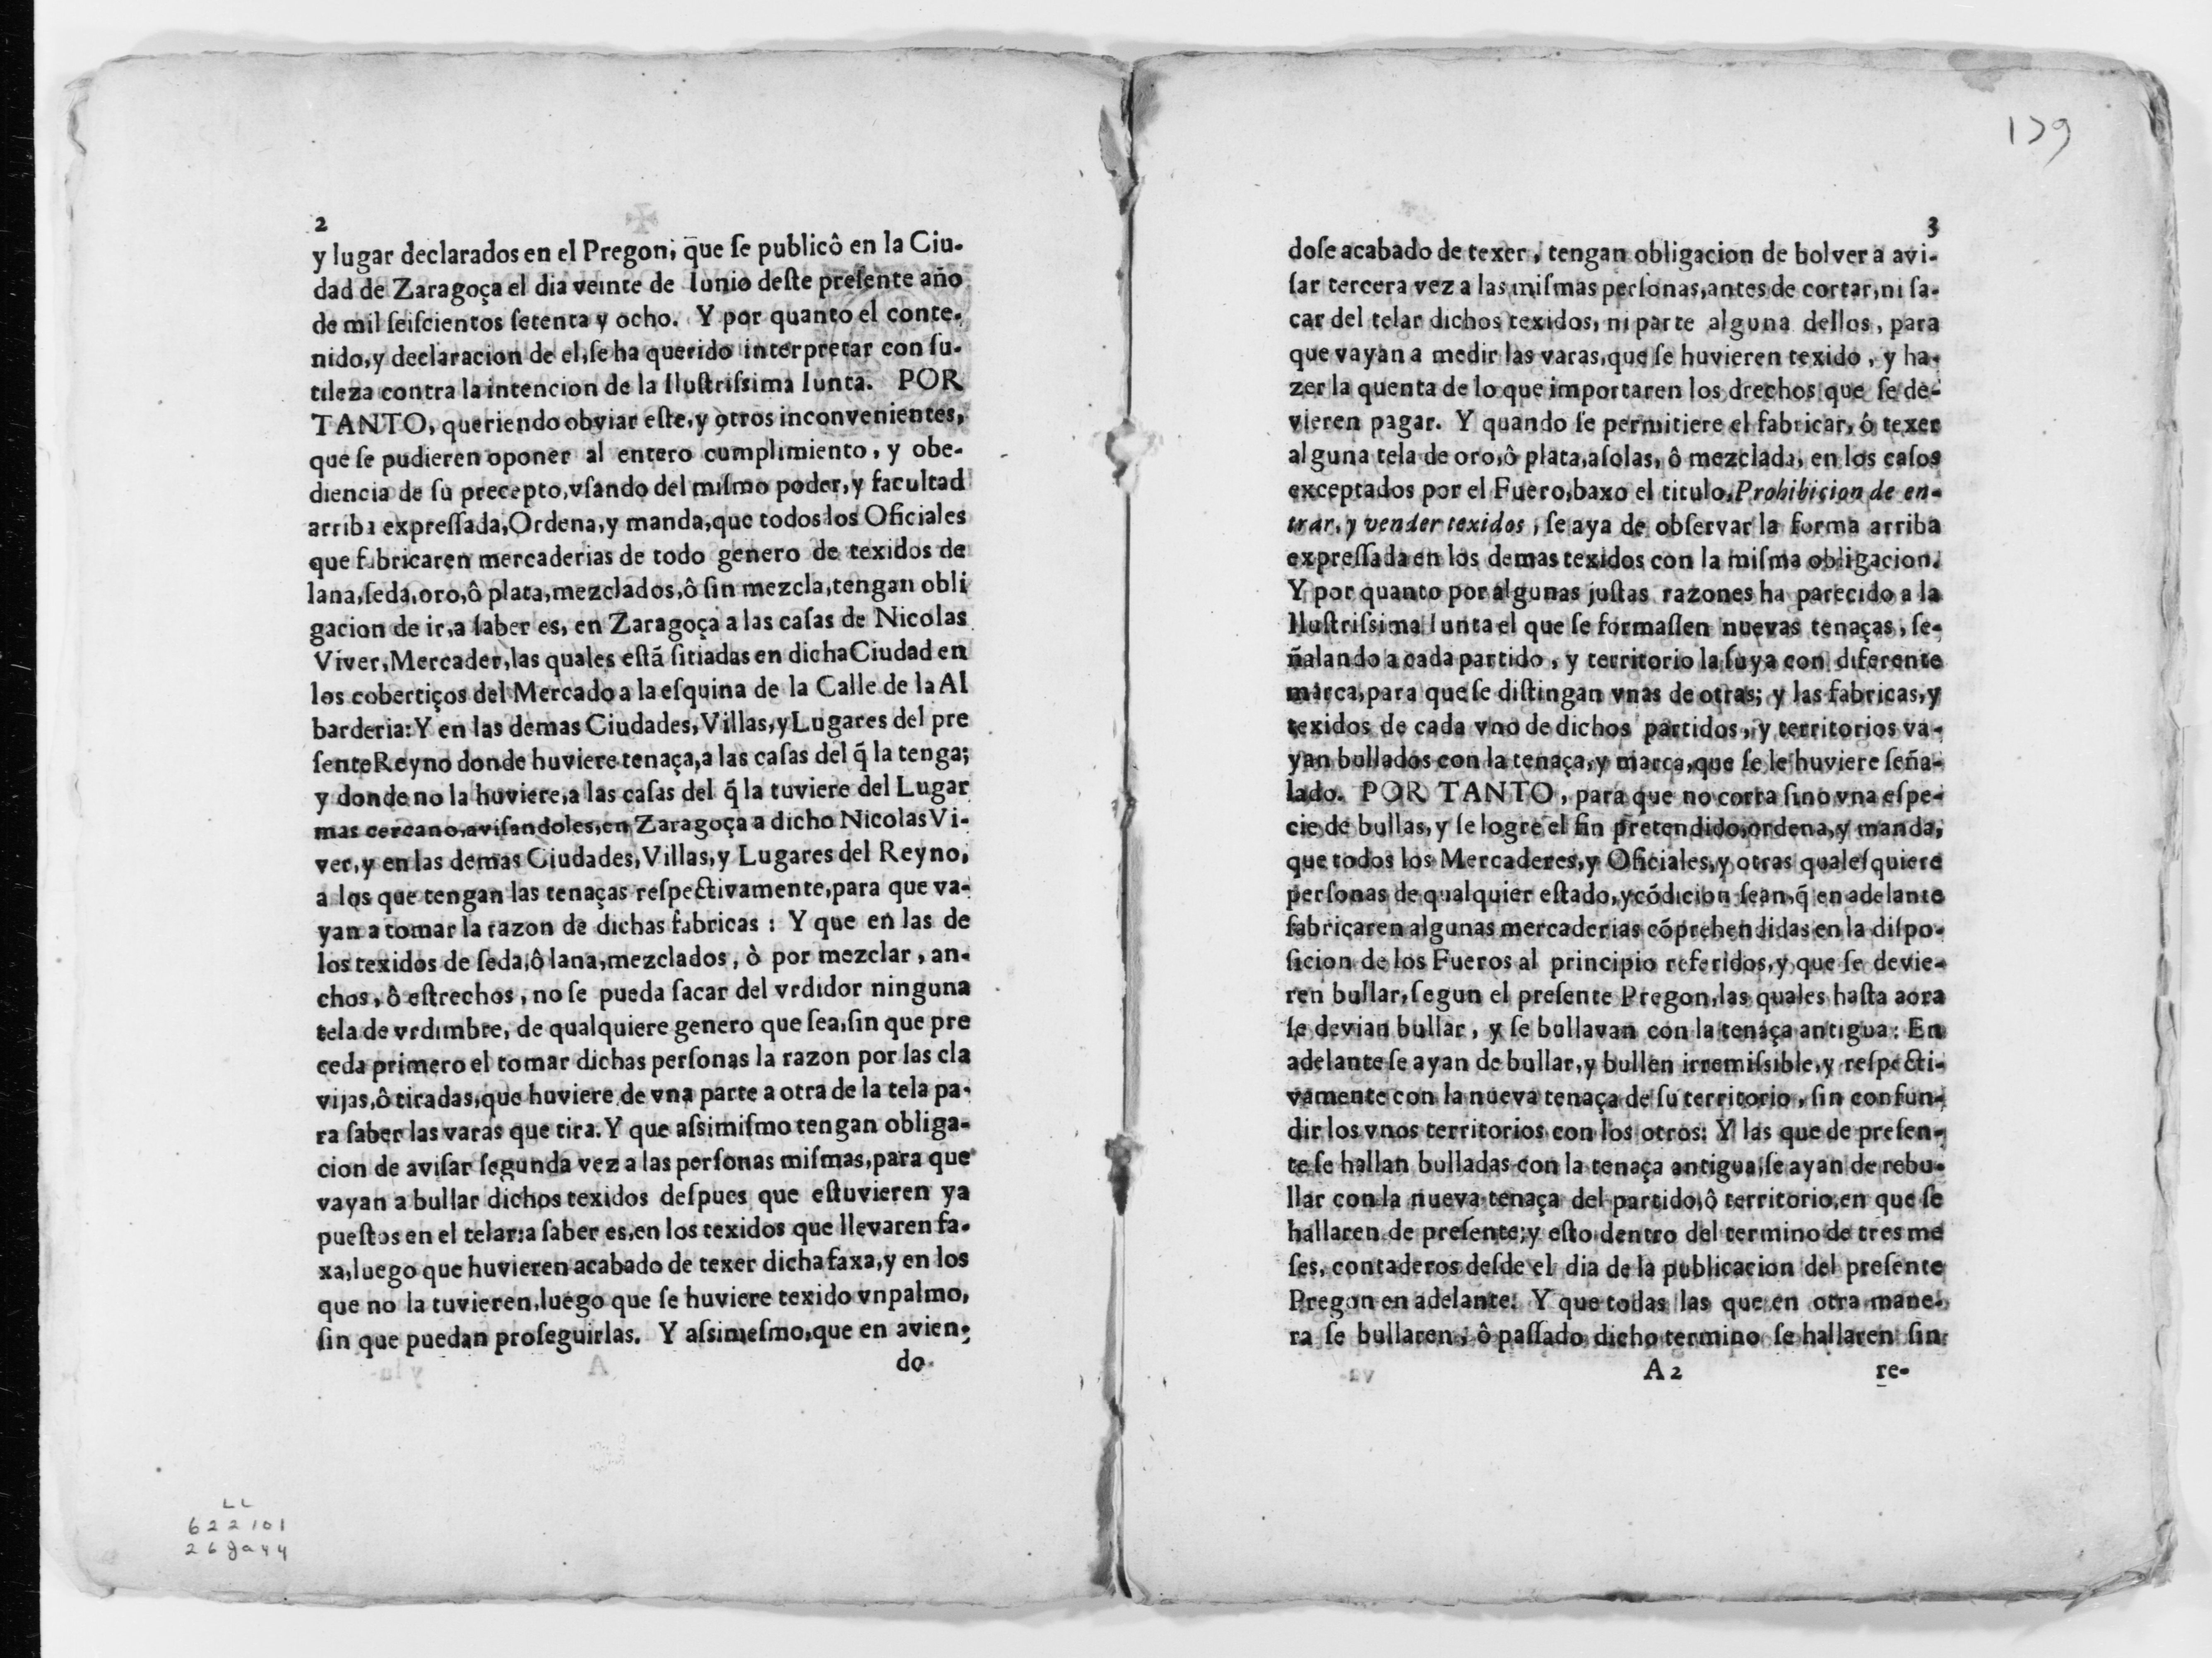 2
y lugar declarados en el Pregon, que ſe publicô en la Ciu-
dad de Zaragoça el dia veinte de Iunio deſte preſente año
de mil ſeiſcientos ſetenta y ocho. Y por quanto el conte-
nido, y declaracion de el, ſe ha querido interpretar con ſu-
tileza contra la intencion de la Iluſtriſsima Iunta. POR
TANTO, queriendo obviar eſte, y otros inconvenientes,
que ſe pudieren oponer al entero cumplimiento, y obe-
diencia de ſu precepto, vſando del miſmo poder, y facultad
arriba expreſſada, Ordena, y manda, que todos los Oficiales
que fabricaren mercaderias de todo genero de texidos de
lana, ſeda, oro, ô plata, mezclados, ô ſin mezcla, tengan obli
gacion de ir, a ſaber es, en Zaragoça a las caſas de Nicolas
Viver, Mercader, las quales eſtã ſitiadas en dicha Ciudad en
los cobertiços del Mercado a la eſquina de la Calle de la Al
barderia: Y en las demas Ciudades, Villas, y Lugares del pre
ſente Reyno donde huviere tenaça, a las caſas del q̃ la tenga;
y donde no la huviere, a las caſas del q̃ la tuviere del Lugar
mas cercano, aviſandoles, en Zaragoça a dicho Nicolas Vi-
ver, y en las demas Ciudades, Villas, y Lugares del Reyno,
a los que tengan las tenaças reſpectivamente, para que va-
yan a tomar la razon de dichas fabricas : Y que en las de
los texidos de ſeda, ô lana, mezclados, ò por mezclar, an-
chos, ô eſtrechos, no ſe pueda ſacar del vrdidor ninguna
tela de vrdimbre, de qualquiere genero que ſea, ſin que pre
ceda primero el tomar dichas perſonas la razon por las cla
vijas, ô tiradas, que huviere de vna parte a otra de la tela pa-
ra ſaber las varas que tira. Y que aſsimiſmo tengan obliga-
cion de aviſar ſegunda vez a las perſonas miſmas, para que
vayan a bullar dichos texidos deſpues que eſtuvieren ya
pueſtos en el telar: a ſaber es, en los texidos que llevaren fa-
xa, luego que huvieren acabado de texer dicha faxa, y en los
que no la tuvieren, luego que ſe huviere texido vn palmo,
ſin que puedan proſeguirlas. Y aſsimeſmo, que en avien-
do-
LL
622101
26ja44
179
3
doſe acabado de texer, tengan obligacion de bolver a avi-
ſar tercera vez a las miſmas perſonas, antes de cortar, ni ſa-
car del telar dichos texidos, ni parte alguna dellos, para
que vayan a medir las varas, que ſe huvieren texido, y ha-
zer la quenta de lo que importaren los drechos que ſe de-
vieren pagar. Y quando ſe permitiere el fabricar, ó texer
alguna tela de oro, ô plata, aſolas, ô mezclada, en los caſos
exceptados por el Fuero, baxo el titulo, Prohibicion de en-
trar, y vender texidos, ſe aya de obſervar la forma arriba
expreſſada en los demas texidos con la miſma obligacion.
Y por quanto por algunas juſtas razones ha parecido a la
Iluſtriſsima Iunta el que ſe formaſſen nuevas tenaças, ſe-
ñalando a cada partido, y territorio la ſuya con diferente
marca, para que ſe diſtingan vnas de otras; y las fabricas, y
texidos de cada vno de dichos partidos, y territorios va-
yan bullados con la tenaça, y marca, que ſe le huviere ſeña-
lado. POR TANTO, para que no corra ſino vna eſpe-
cie de bullas, y ſe logre el fin pretendido, ordena, y manda,
que todos los Mercaderes, y Oficiales, y otras qualeſquiere
perſonas de qualquier eſtado, y cõdicion ſean, q̃ en adelante
fabricaren algunas mercaderias cõprehendidas en la diſpo-
ſicion de los Fueros al principio referidos, y que ſe devie-
ren bullar, ſegun el preſente Pregon, las quales haſta aora
ſe devian bullar, y ſe bullavan con la tenaça antigua: En
adelante ſe ayan de bullar, y bullen irremiſsible, y reſpecti-
vamente con la nueva tenaça de ſu territorio, ſin confun-
dir los vnos territorios con los otros: Y las que de preſen-
te ſe hallan bulladas con la tenaça antigua, ſe ayan de rebu-
llar con la nueva tenaça del partido, ô territorio, en que ſe
hallaren de preſente; y eſto dentro del termino de tres me
ſes, contaderos deſde el dia de la publicacion del preſente
Pregon en adelante: Y que todas las que en otra mane-
ra ſe bullaren, ô paſſado dicho termino ſe hallaren ſin
A 2 re-